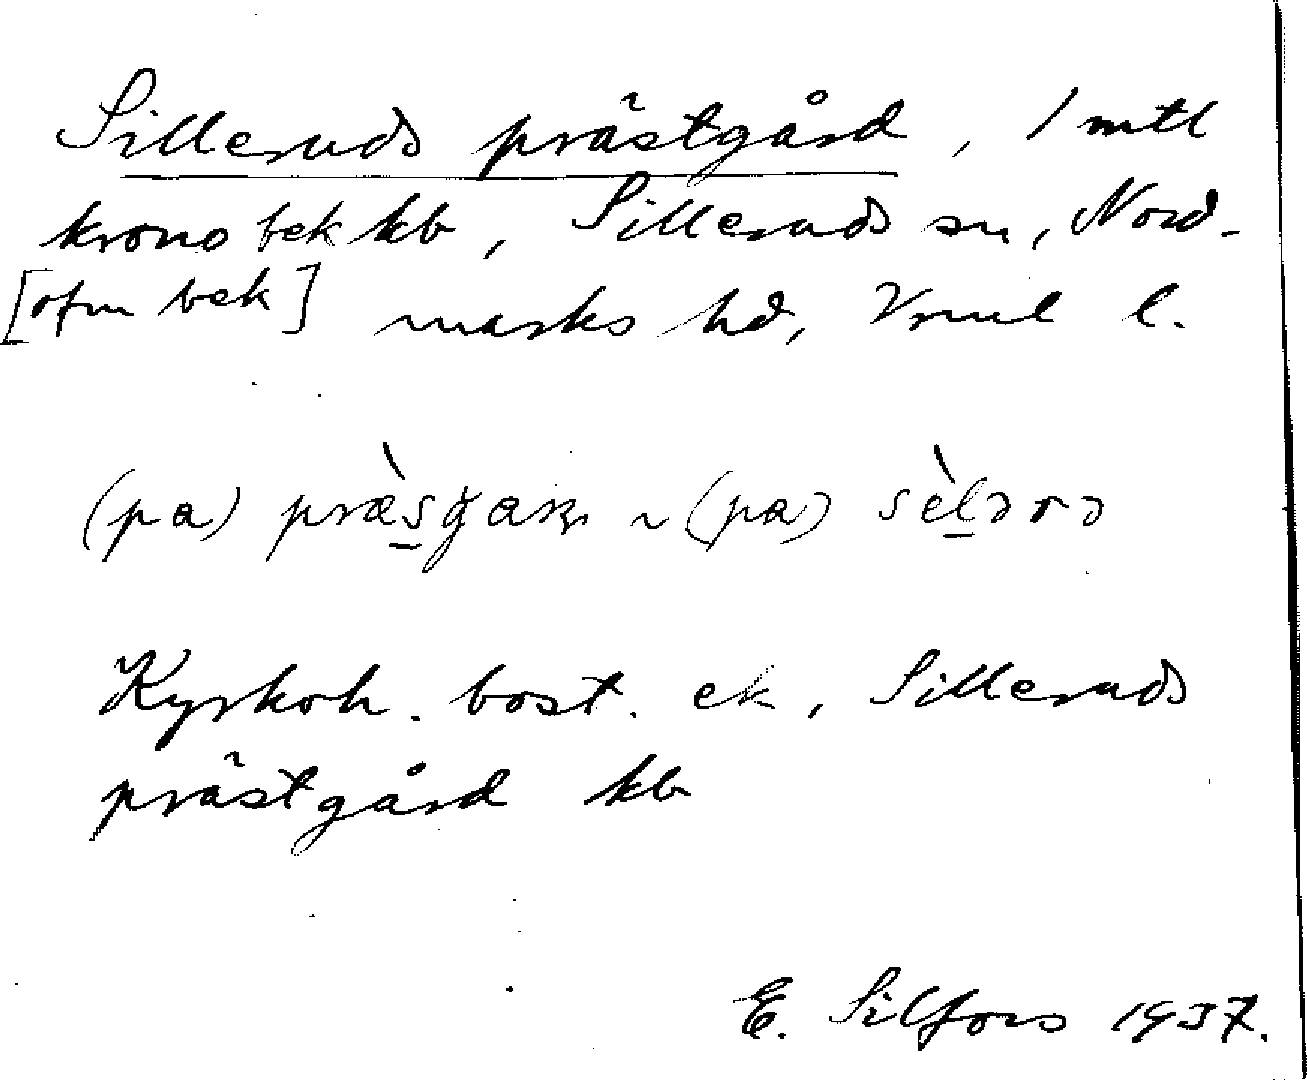 Silleruds prästgård, 1 mtl
krono bek kb, Silleruds sn, Nord-
[ofm bek] marks hd, Vrml l.
(pa) præ̀sgaɳ ~ (pa) sèlərə
Kyrkoh. bost. ek, Silleruds
prästgård kb
E. Silfors 1937.